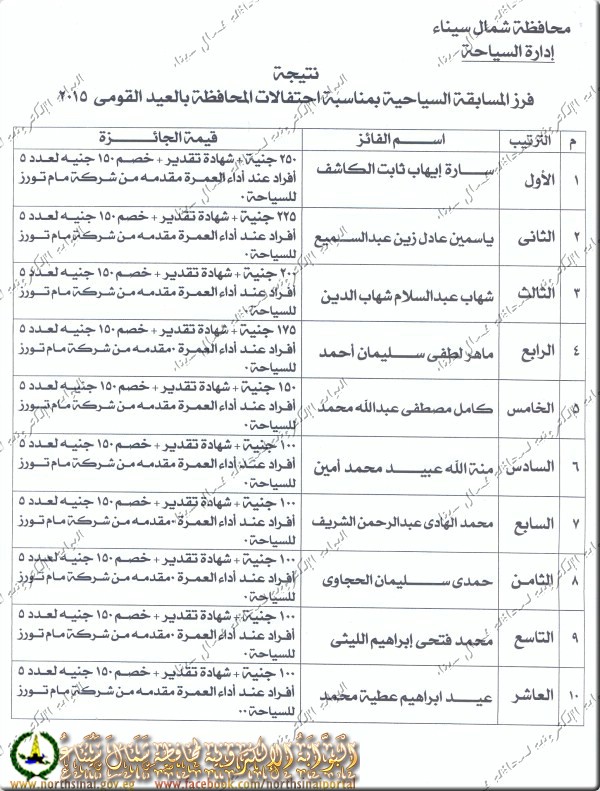 محافظة شمال سيناء
إدارة السياحة
نتيجة
فرز المسابقة السياحية بمناسبة احتفالات المحافظة بالعيد القومى ٢٠١٥
م الترتيب اسم الفائز قيمة الجائزة
١ الأول سارة إيهاب ثابت الكاشف ٢٥٠ جنية + شهادة تقدير + خصم ١٥٠ جنيه لعدد ٥
أفراد عند أداء العمرة مقدمه من شركة مام تورز
للسياحة٠
٢ الثانى ياسمين عادل زين عبدالسميع ٢٢٥ جنية + شهادة تقدير + خصم ١٥٠ جنيه لعدد ٥
أفراد عند أداء العمرة مقدمه من شركة مام تورز
للسياحة٠
٣ الثالث شهاب عبدالسلام شهاب الدين ٢٠٠ جنية + شهادة تقدير + خصم ١٥٠ جنيه لعدد ٥
أفراد عند أداء العمرة مقدمه من شركة مام تورز
للسياحة٠٠
٤ الرابع ماهر لطفى سليمان أحمد ١٧٥ جنية + شهادة تقدير + خصم ١٥٠ جنيه لعدد ٥
أفراد عند أداء العمرة ٠مقدمه من شركة مام تورز
للسياحة٠
٥ الخامس كامل مصطفى عبدالله محمد ١٥٠ جنية + شهادة تقدير + خصم ١٥٠ جنيه لعدد ٥
أفراد عند أداء العمرة مقدمه من شركة مام تورز
للسياحة٠
٦ السادس منة الله عبيد محمد أمين ١٠٠ جنية + شهادة تقدير + خصم ١٥٠ جنيه لعدد ٥
أفراد عند أداء العمرة مقدمه من شركة مام تورز
للسياحة٠
٧ السابع محمد الهادى عبدالرحمن الشريف ١٠٠ جنية + شهادة تقدير + خصم ١٥٠ جنيه لعدد ٥
أفراد عند أداء العمرة مقدمه من شركة مام تورز
للسياحة٠
٨ الثامن حمدى سليمان الحجاوى ١٠٠ جنية + شهادة تقدير + خصم ١٥٠ جنيه لعدد ٥
أفراد عند أداء العمرة مقدمه من شركة مام تورز
للسياحة٠
٩ التاسع محمد فتحى إبراهيم الليثى ١٠٠ جنية + شهادة تقدير + خصم ١٥٠ جنيه لعدد ٥
أفراد عند أداء العمرة ٠مقدمه من شركة مام تورز
للسياحة٠
١٠ العاشر عيد ابراهيم عطية محمد ١٠٠ جنية + شهادة تقدير + خصم ١٥٠ جنيه لعدد ٥
أفراد عند أداء العمرة ٠مقدمه من شركة مام تورز
للسياحة٠٠
البوابة الإلكترونية لمحافظة شمال سيناء
www.northsinai.gov.eg www.facebook.com/northsinaiportal